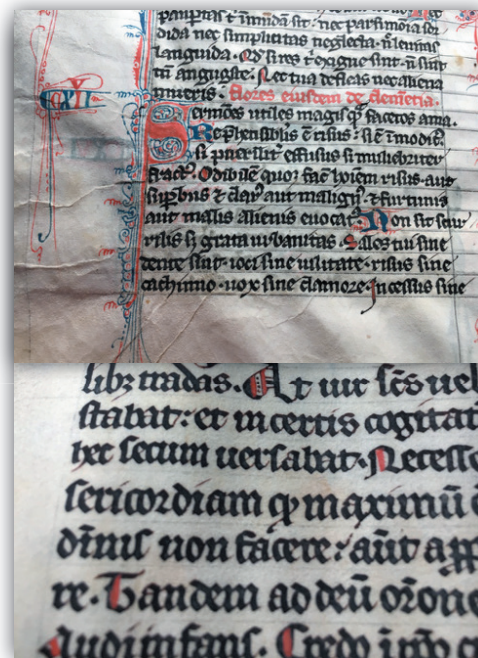 paupertas t̄ inmūda sit: nec parsimonia sor
dida nec simplicitas neglecta. n̄ lenitas
languida. Et si res t̄ exigue sint. n̄ sint
tn̄ anguste. Nec tua defleas nec aliena
mireris. flores eiusdem de clemētia.
CXII
Sermōes utiles magis qͣ facetos ama.
Rep̄hensibilis ē risus: si ē īmodic̄.
si pueriliť effusus si muliebriter
fract᷒. Odibilē quoqꝫ fac̄ hoīem risus. aut
supbus & clar᷒ aut malign᷒. & furtiuus
aut malis alienis euocat᷒. Non sit scur
rilis si grata urbanitas. Sales tui sine
dente sint. ioci sine uilitate. risus sine
cachinno. uox sine clamore. Incessus sine
libꝫ tradas. At uir sc̄s uel
stabat: et incertis cogitat
hec secum uersabat. Necesse
sericordiam qͥ maximū
dinis non facere: aūt app
re. Tandem ad deū orone
audi infans. Credo īmo